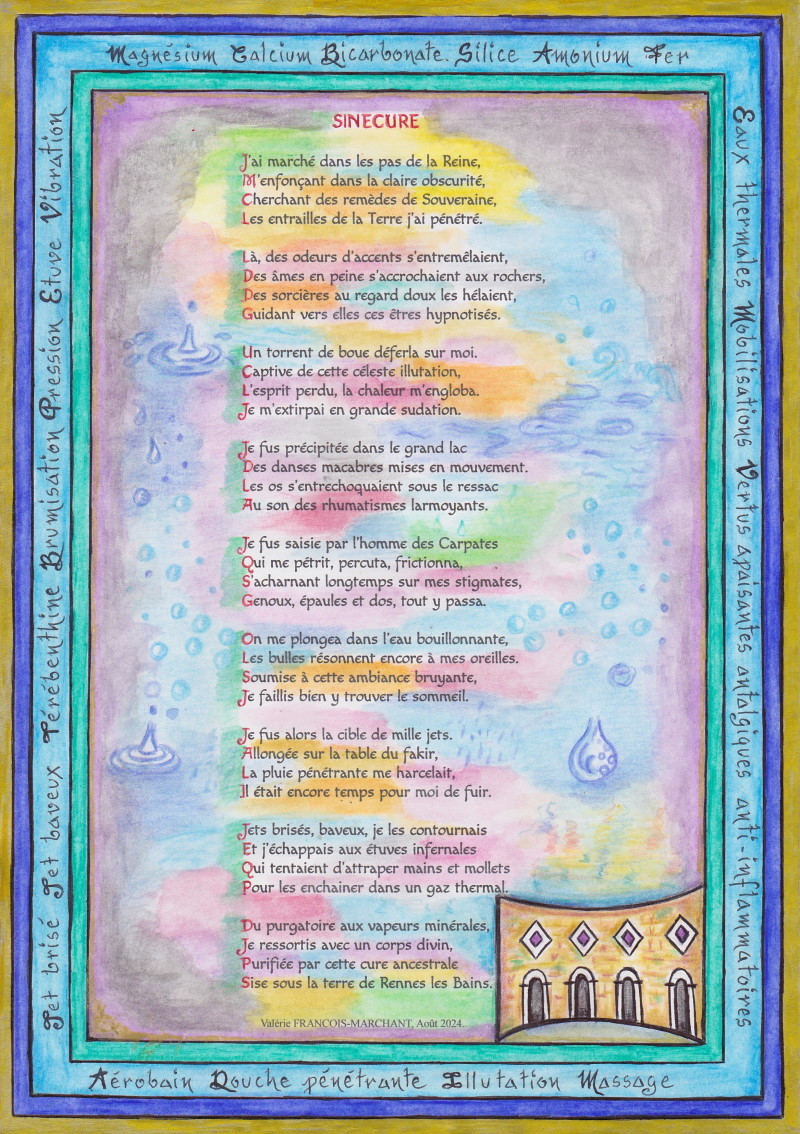 Magnésium Calcium Bicarbonate. Silice Amonium Fer
SINECURE
J'ai marché dans les pas de la Reine,
M'enfonçant dans la claire obscurité,
Cherchant des remèdes de Souveraine,
Les entrailles de la Terre j'ai pénétré.
Là, des odeurs d'accents s'entremêlaient,
Des âmes en peine s'accrochaient aux rochers,
Des sorcières au regard doux les hélaient,
Guidant vers elles ces êtres hypnotisés.
Un torrent de boue déferla sur moi.
Captive de cette céleste illutation,
L'esprit perdu, la chaleur m'engloba.
Je m'extirpai en grande sudation.
Je fus précipitée dans le grand lac
Des danses macabres mises en mouvement.
Les os s'entrechoquaient sous le ressac
Au son des rhumatismes larmoyants.
Je fus saisie par l'homme des Carpates
Qui me pétrit, percuta, frictionna,
S'acharnant longtemps sur mes stigmates,
Genoux, épaules et dos, tout y passa.
On me plongea dans l'eau bouillonnante,
Les bulles résonnent encore à mes oreilles.
Soumise à cette ambiance bruyante,
Je faillis bien y trouver le sommeil.
Je fus alors la cible de mille jets.
Allongée sur la table du fakir,
La pluie pénétrante me harcelait,
Il était encore temps pour moi de fuir.
Jets brisés, baveux, je les contournais
Et j'échappais aux étuves infernales
Qui tentaient d'attraper mains et mollets
Pour les enchainer dans un gaz thermal.
Du purgatoire aux vapeurs minérales,
Je ressortis avec un corps divin,
Purifiée par cette cure ancestrale
Sise sous la terre de Rennes les Bains.
Valérie FRANCOIS-MARCHANT, Août 2024.
Jet brisé Jet baveux Térébenthine Brumisation Pression Etuve Vibration
Eaux thermales Mobilisations Vertus apaisantes antalgiques anti-inflammatoires
Aérobain Douche pénétrante Illutation Massage